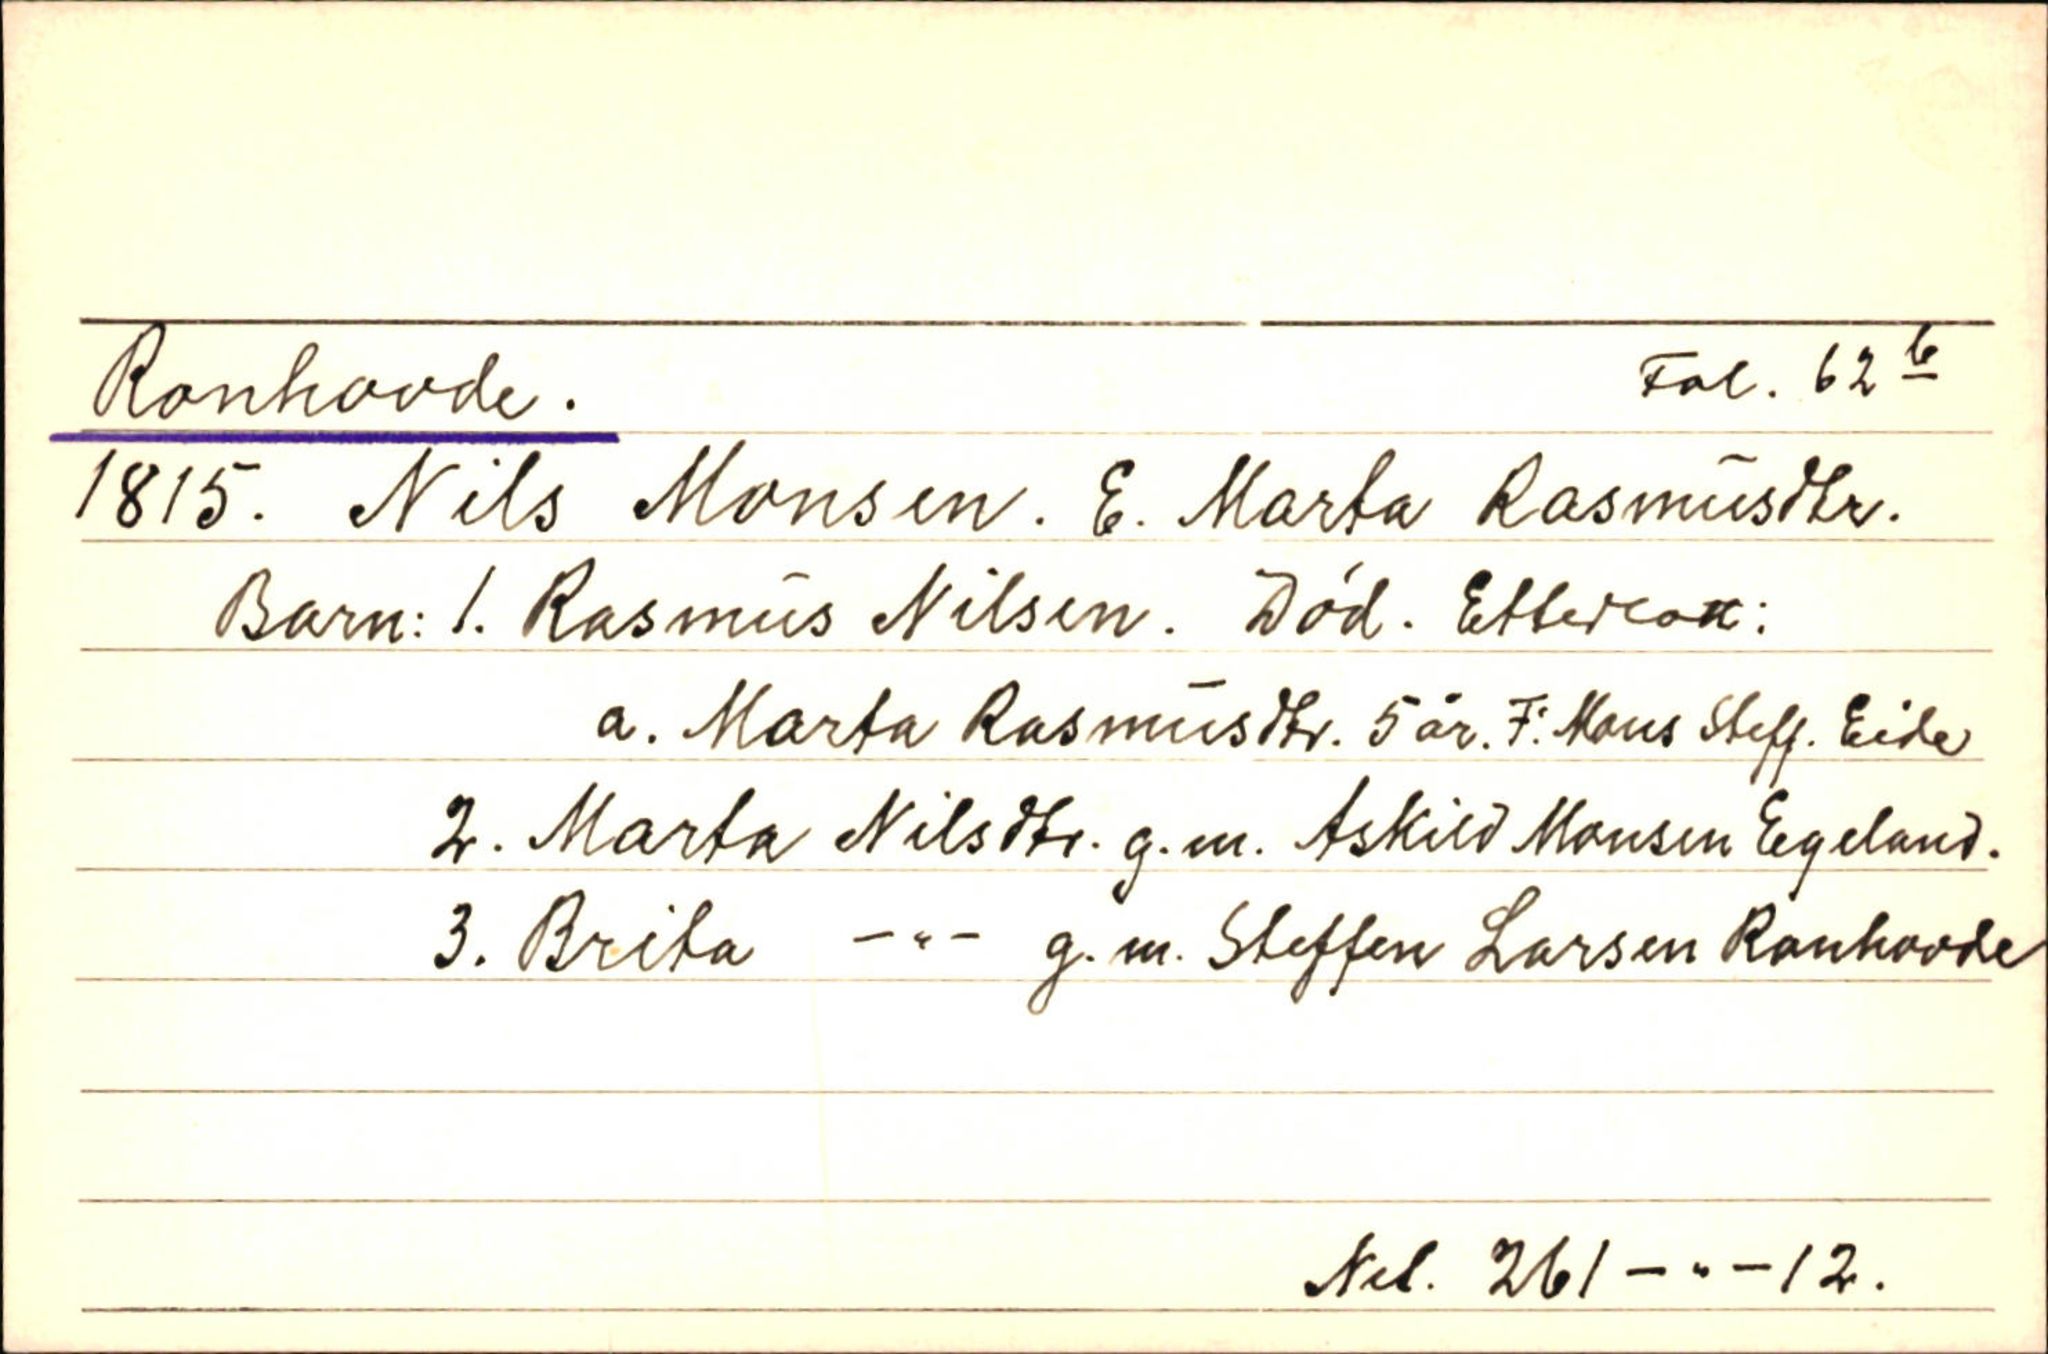 Ronhovde. Fol. 62 b
1815. Nils Monsen. E. Marta Rasmusdtr.
Barn: 1. Rasmus Nilsen. Död. Etterlott:
a. Marta Rasmusdtr. 5 år. F. Mons Steff. Eide
2. Marta Nilsdtr. g.m. Askild Monsen Eegeland.
3. Brita -"- g.m. Steffen Larsen Ronhovde
Nel. 261-"-12.